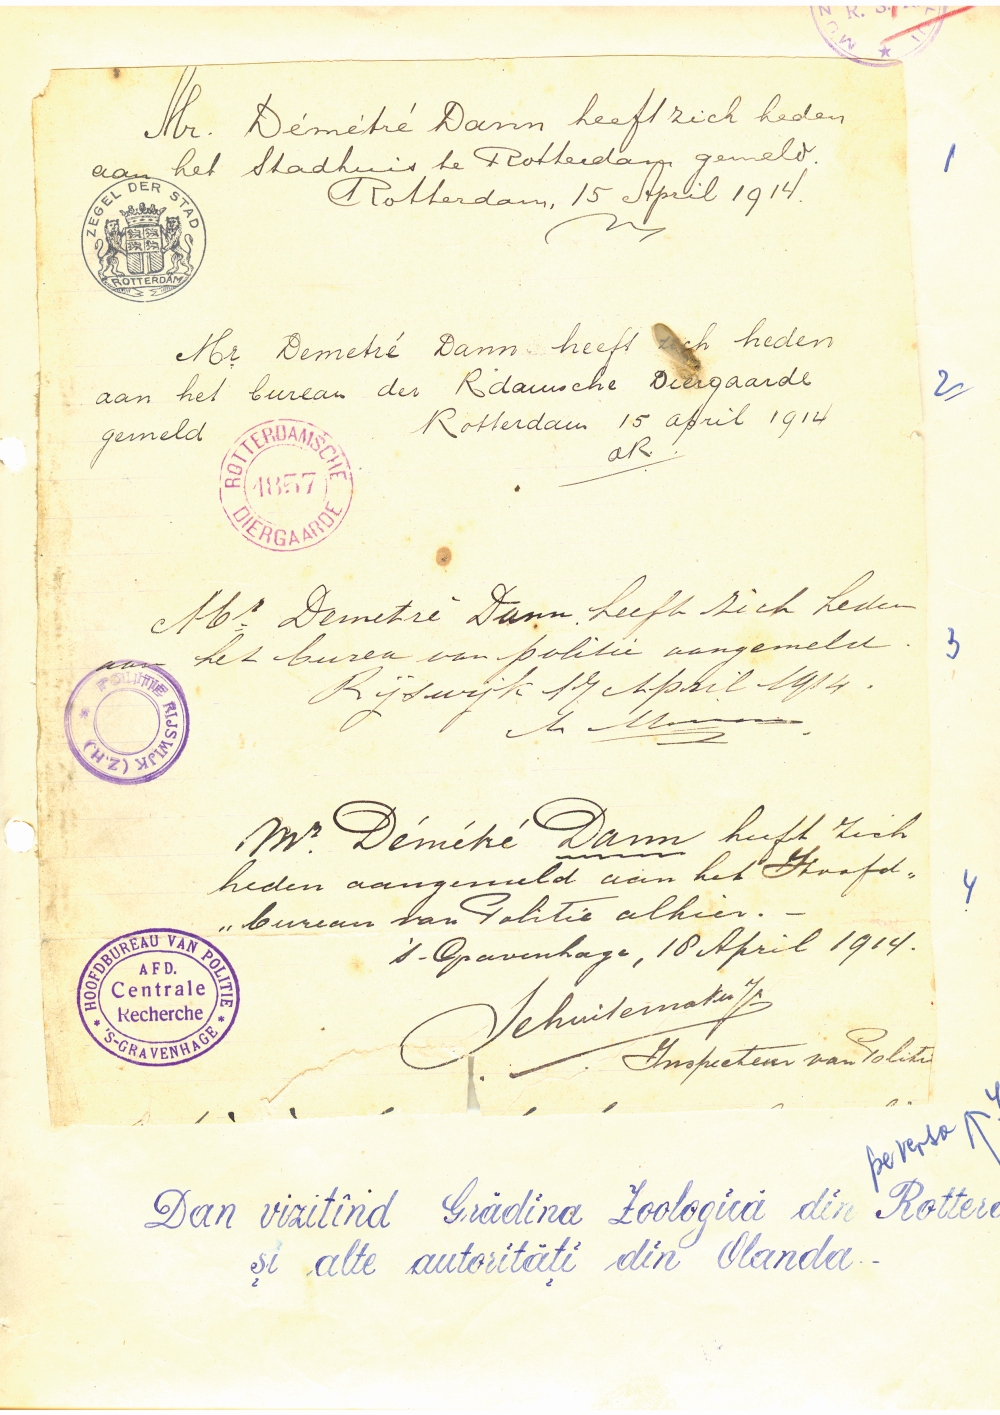 R. S.
Mr. Démétré Dann heeft zich heden
aan het Stadhuis te Rotterdam gemeld.
Rotterdam, 15 April 1914.
1
ZEGEL DER STAD
ROTTERDAM
Mr. Demetré Dann heeft zich heden
aan het bureau der R'damsche Diergaarde
gemeld Rotterdam 15 april 1914
2
ROTTERDAMSCHE
1857
DIERGAARDE
Mr. Demetré Dann heeft zich heden
aan het burea van politie aangemeld.
Rijswijk 17 April 1914.
3
POLITIE RIJSWIJK (Z.H.)
Mr. Démétré Dann heeft zich
heden aangemeld aan het Hoofd„
„bureau van Politie alhier. –
's-Gravenhage, 18 April 1914.
4
HOOFDBUREAU VAN POLITIE
AFD.
Centrale
Recherche
'S-GRAVENHAGE
Schuitemaker
Inspecteur van Politie
pe verso
Dan vizitînd Grădina Zoologică din Rotterd
și alte autorități din Olanda -